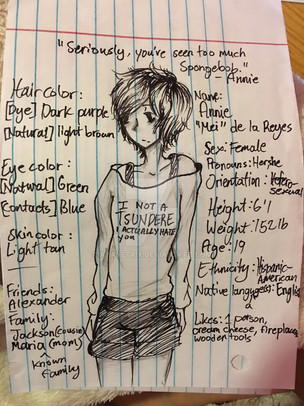 "Seriously, you've seen too much
Spongebob."
- Annie
Hair color:
[Dye] Dark purple
[Natural] light brown
Eye color:
[Natural] Green
[contacts] Blue
Skin color:
Light tan
Friends:
Alexander
Family:
Jackson (cousin)
Maria (mom)
^ known
family
I NOT A
TSUNDERE
I ACTUALLY HATE
you
Name:
Annie
"Mei" de la Reyes
Sex: Female
Pronouns: Her she
Orientation: Hetero-
sexual
Height: 6'1
Weight: 152 lb
Age: 19
Ethnicity: Hispanic-
American
Native language(s): English
Likes: 1 person,
cream cheese, fireplaces
wooden tools